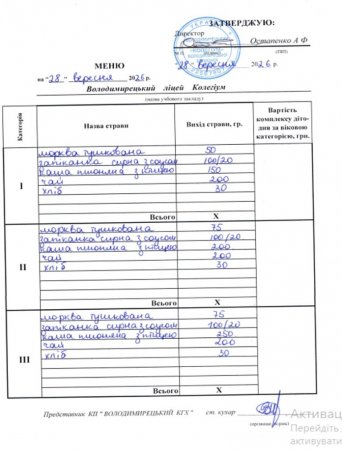 ЗАТВЕРДЖУЮ:
Директор
Остапенко А Ф
(ПІП)
"28" вересня 2026 р.
МЕНЮ
на "28" вересня 2026 р.
Володимирецький ліцей Колегіум
(назва учбового закладу)
Категорія
Назва страви
Вихід страви, гр.
Вартість комплексу діто-дня за віковою категорією, грн.
I
морква тушкована 50
запіканка сирна з соусом 100/20
каша пшоняна з птицею 150
чай 200
хліб 30
Всього X
II
морква тушкована 75
запіканка сирна з соусом 100/20
каша пшоняна з птицею 200
чай 200
хліб 30
Всього X
III
морква тушкована 75
запіканка сирна з соусом 100/20
каша пшоняна з птицею 250
чай 200
хліб 30
Всього X
Представник КП " ВОЛОДИМИРЕЦЬКИЙ КГХ " ст. кухар
Активац
Перейдіть
активувати